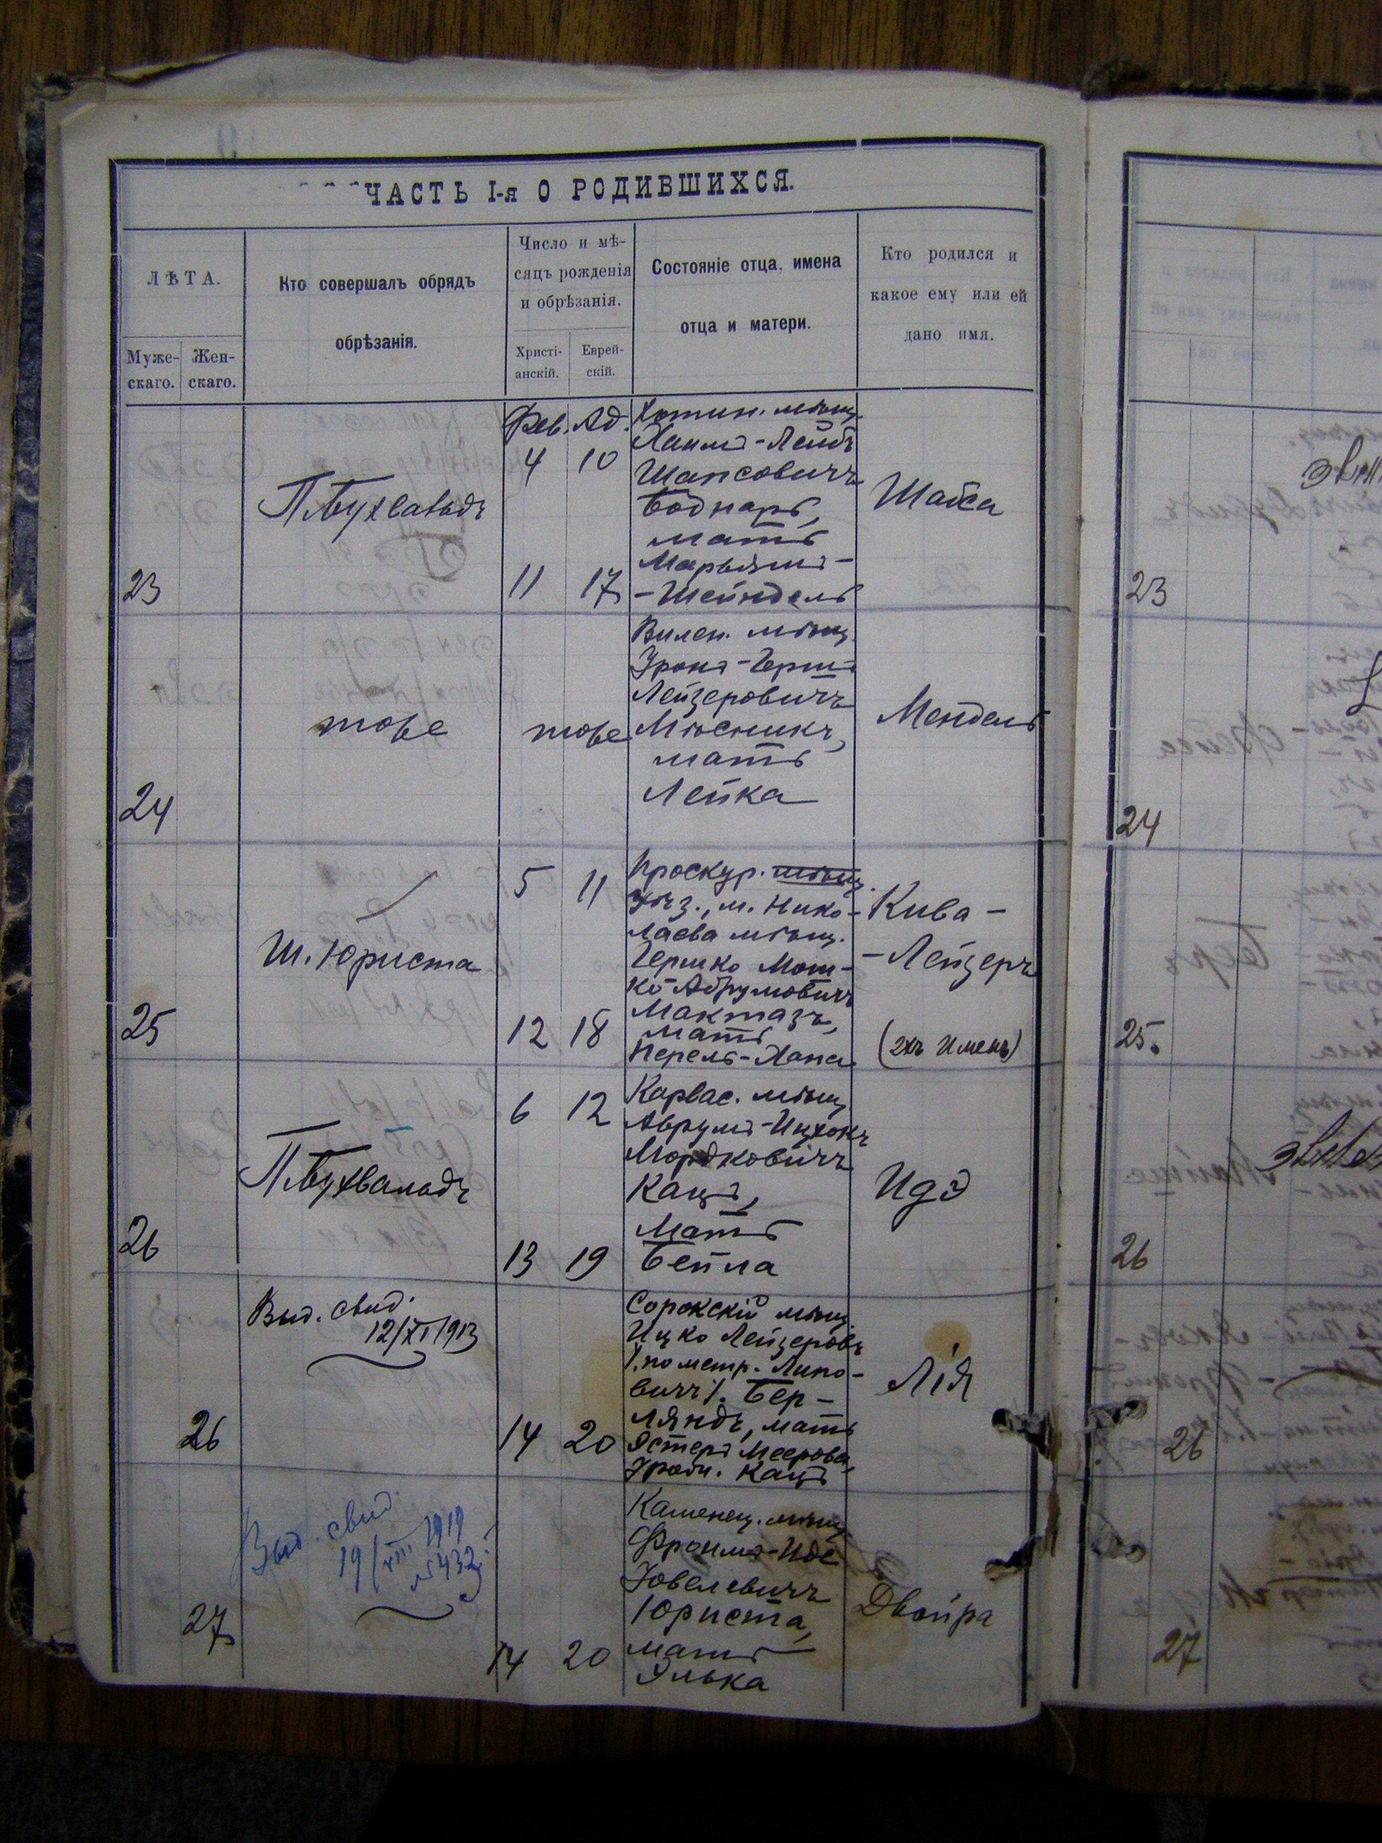 ЧАСТЬ I-я О РОДИВШИХСЯ.
ЛѢТА.
Муже-
скаго.
Жен-
скаго.
Кто совершалъ обрядъ
обрѣзанія.
Число и мѣ-
сяцъ рожденія
и обрѣзанія.
Христі-
анскій.
Еврей-
скій.
Состояніе отца, имена
отца и матери.
Кто родился и
какое ему или ей
дано имя.
23
П. Бухвальдъ
Фев. Ад.
4 10
11 17
Хотин. мѣщ.
Хаимъ-Лейбъ
Шапсовичъ
Боднаръ,
мать
Марьямъ-
-Шейндель
24
тоже
тоже
Вилен. мѣщ.
Лейзеровичъ
Мѣсникъ,
мать
Лейка
Мендель
25
Ш. Юриста
5 11
12 18
Проскур. мѣщ.
уѣз., м. Нико-
лаева мѣщ.
Гершко Мош-
ко-Абрумовичъ
Мактазъ,
мать
Перель-Хана
Кива-
-Лейзеръ
(2хъ именъ)
26
П. Бухвальдъ
6 12
13 19
мѣщ.
Аврумъ-Ицхокъ
Мордковичъ
Кацъ,
мать
Бейла
Идэ
26
Выд. свид.
12/XI 1913
14 20
Сорокскій мѣщ.
Ицко Лейзеровъ
(по метр. Лизо-
вичъ). Бер-
ляндъ, мать
Эстеръ Меерова,
урожд. Кацъ
Лія
27
Выд. свид.
19/VIII 1919
№ 432
14 20
Каменец. мѣщ.
Фроимъ-Идэ
Іовелевичъ
Юриста,
мать
Элька
Двойра
23
24
25.
26
26
27